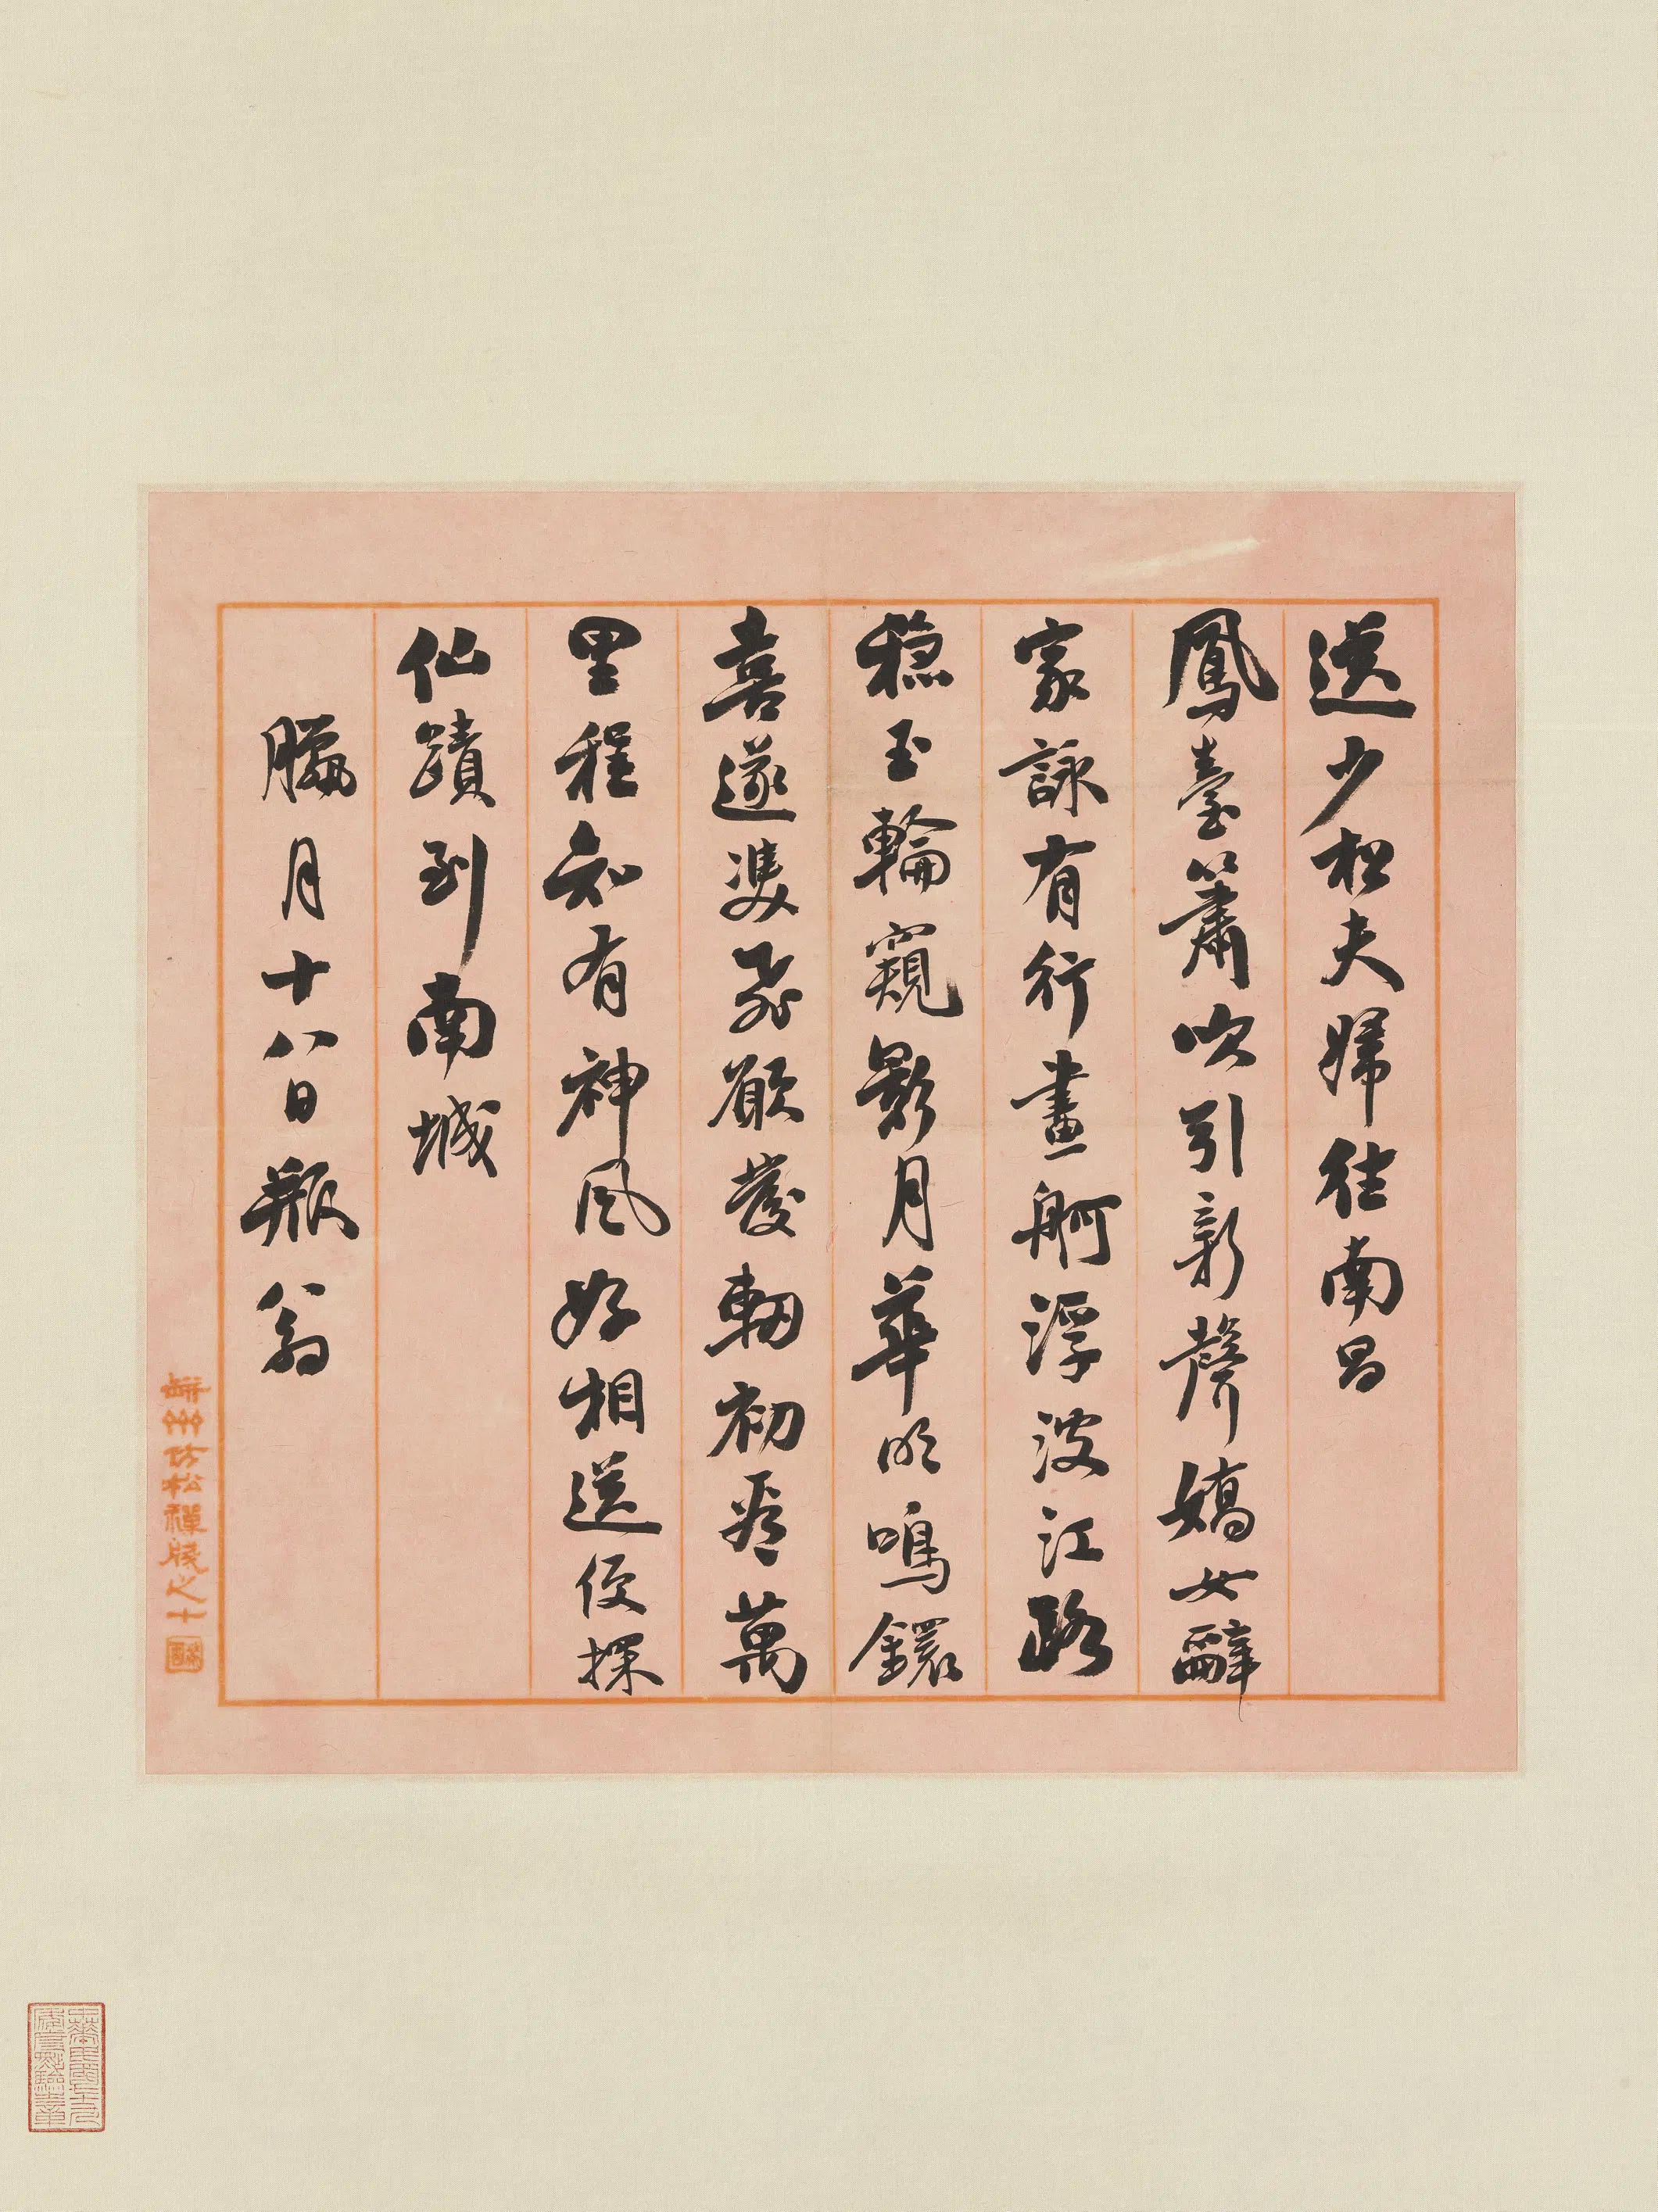 送少松夫婦往南昌
鳳臺簫吹引新聲嬌女辭
家詠有行畫舸浮波江路
穩玉輪窺影月華明鳴鐶
喜遂雙飛願發軔初看萬
里程知有神風好相送便探
仙蹟到南城
臘月十八日瓶翁
松禪牋之十